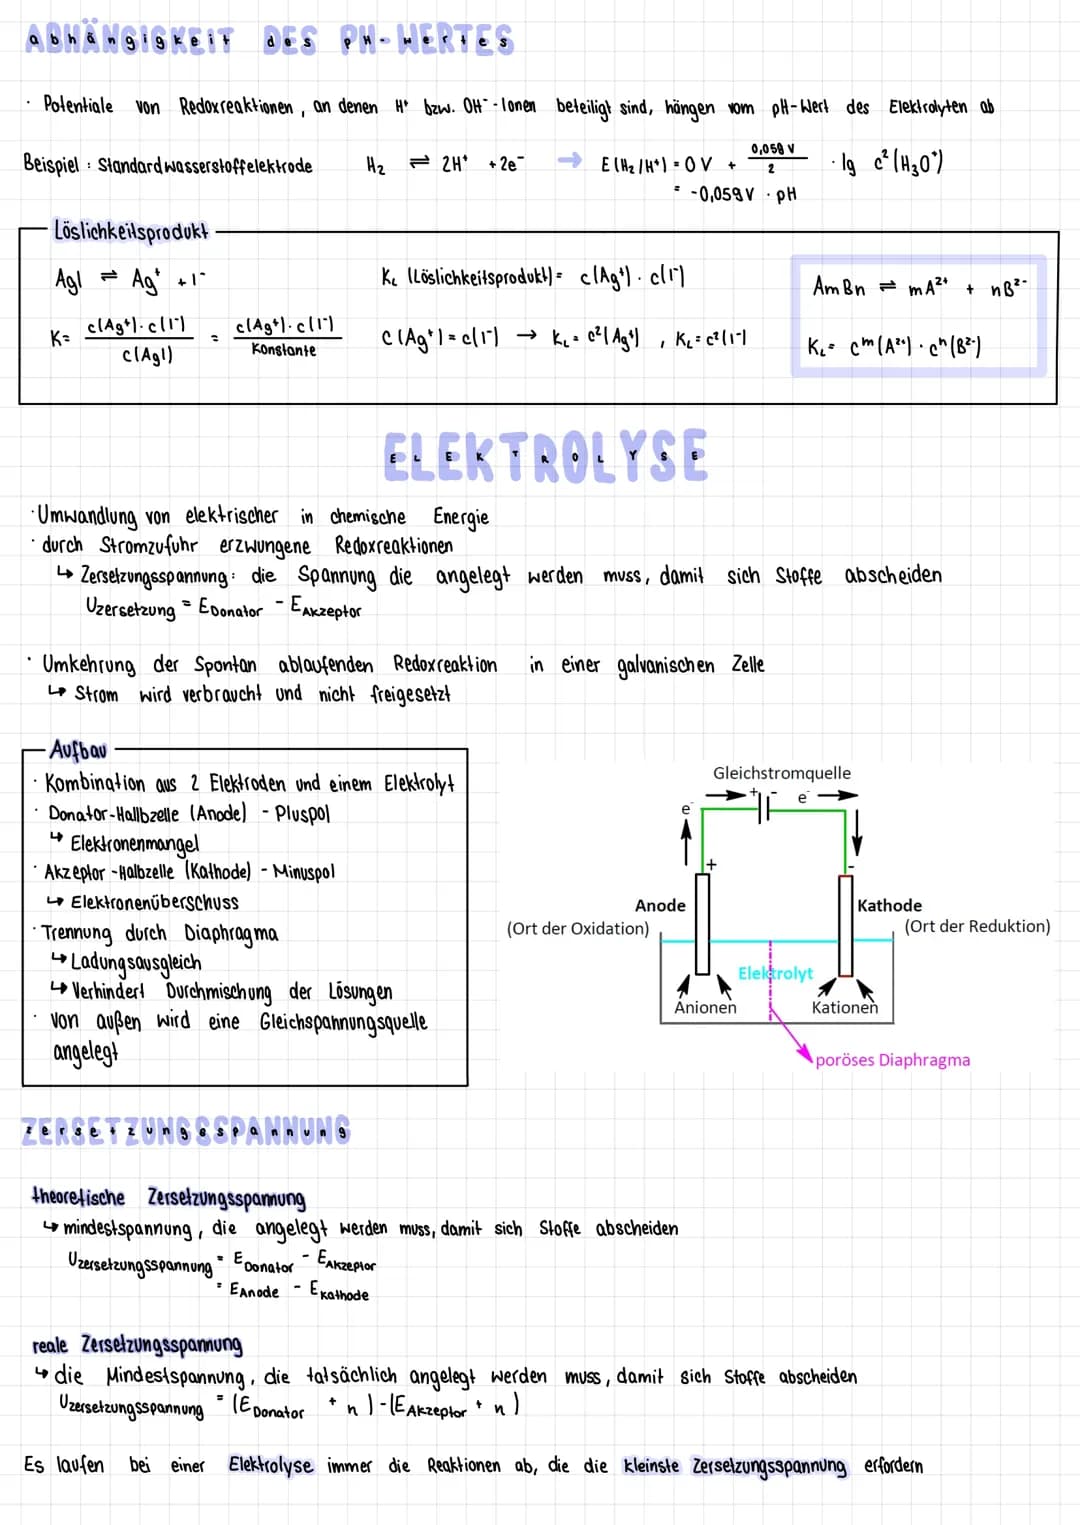 ABHÄNGIGKEIT DES PH-WERTES
· Potentiale von Redoxreaktionen, an denen H⁺ bzw. OH⁻-Ionen beteiligt sind, hängen vom pH-Wert des Elektrolyten ab
Beispiel: Standardwasserstoffelektrode H₂ ⇌ 2H⁺ + 2e⁻ → E(H₂/H⁺) = 0V + 0,059 V / 2 · lg c²(H₃O⁺)
= -0,059V · pH
Löslichkeitsprodukt
AgI ⇌ Ag⁺ + I⁻ K_L (Löslichkeitsprodukt) = c(Ag⁺) · c(I⁻) AmBn ⇌ mA²⁺ + nB²⁻
K = c(Ag⁺)·c(I⁻) / c(AgI) = c(Ag⁺)·c(I⁻) / Konstante c(Ag⁺) = c(I⁻) → K_L = c²(Ag⁺), K_L = c²(I⁻) K_L = cᵐ(A²⁺) · cⁿ(B²⁻)
ELEKTROLYSE
· Umwandlung von elektrischer in chemische Energie
· durch Stromzufuhr erzwungene Redoxreaktionen
↳ Zersetzungsspannung: die Spannung die angelegt werden muss, damit sich Stoffe abscheiden
Uzersetzung = EDonator - EAkzeptor
· Umkehrung der Spontan ablaufenden Redoxreaktion in einer galvanischen Zelle
↳ Strom wird verbraucht und nicht freigesetzt
Aufbau
· Kombination aus 2 Elektroden und einem Elektrolyt
· Donator-Hallbzelle (Anode) - Pluspol
↳ Elektronenmangel
· Akzeptor-Halbzelle (Kathode) - Minuspol
↳ Elektronenüberschuss
· Trennung durch Diaphragma
↳ Ladungsausgleich
↳ Verhindert Durchmischung der Lösungen
· Von außen wird eine Gleichspannungsquelle
angelegt
Gleichstromquelle
+ - e⁻
e⁻
+ -
Anode Kathode
(Ort der Oxidation) (Ort der Reduktion)
Elektrolyt
Anionen Kationen
poröses Diaphragma
ZERSETZUNGSSPANNUNG
theoretische Zersetzungsspannung
↳ mindestspannung, die angelegt werden muss, damit sich Stoffe abscheiden
Uzersetzungsspannung = EDonator - EAkzeptor
= EAnode - EKathode
reale Zersetzungsspannung
↳ die Mindestspannung, die tatsächlich angelegt werden muss, damit sich Stoffe abscheiden
Uzersetzungsspannung = (EDonator + n) - (EAkzeptor + n)
Es laufen bei einer Elektrolyse immer die Reaktionen ab, die die kleinste Zersetzungsspannung erfordern